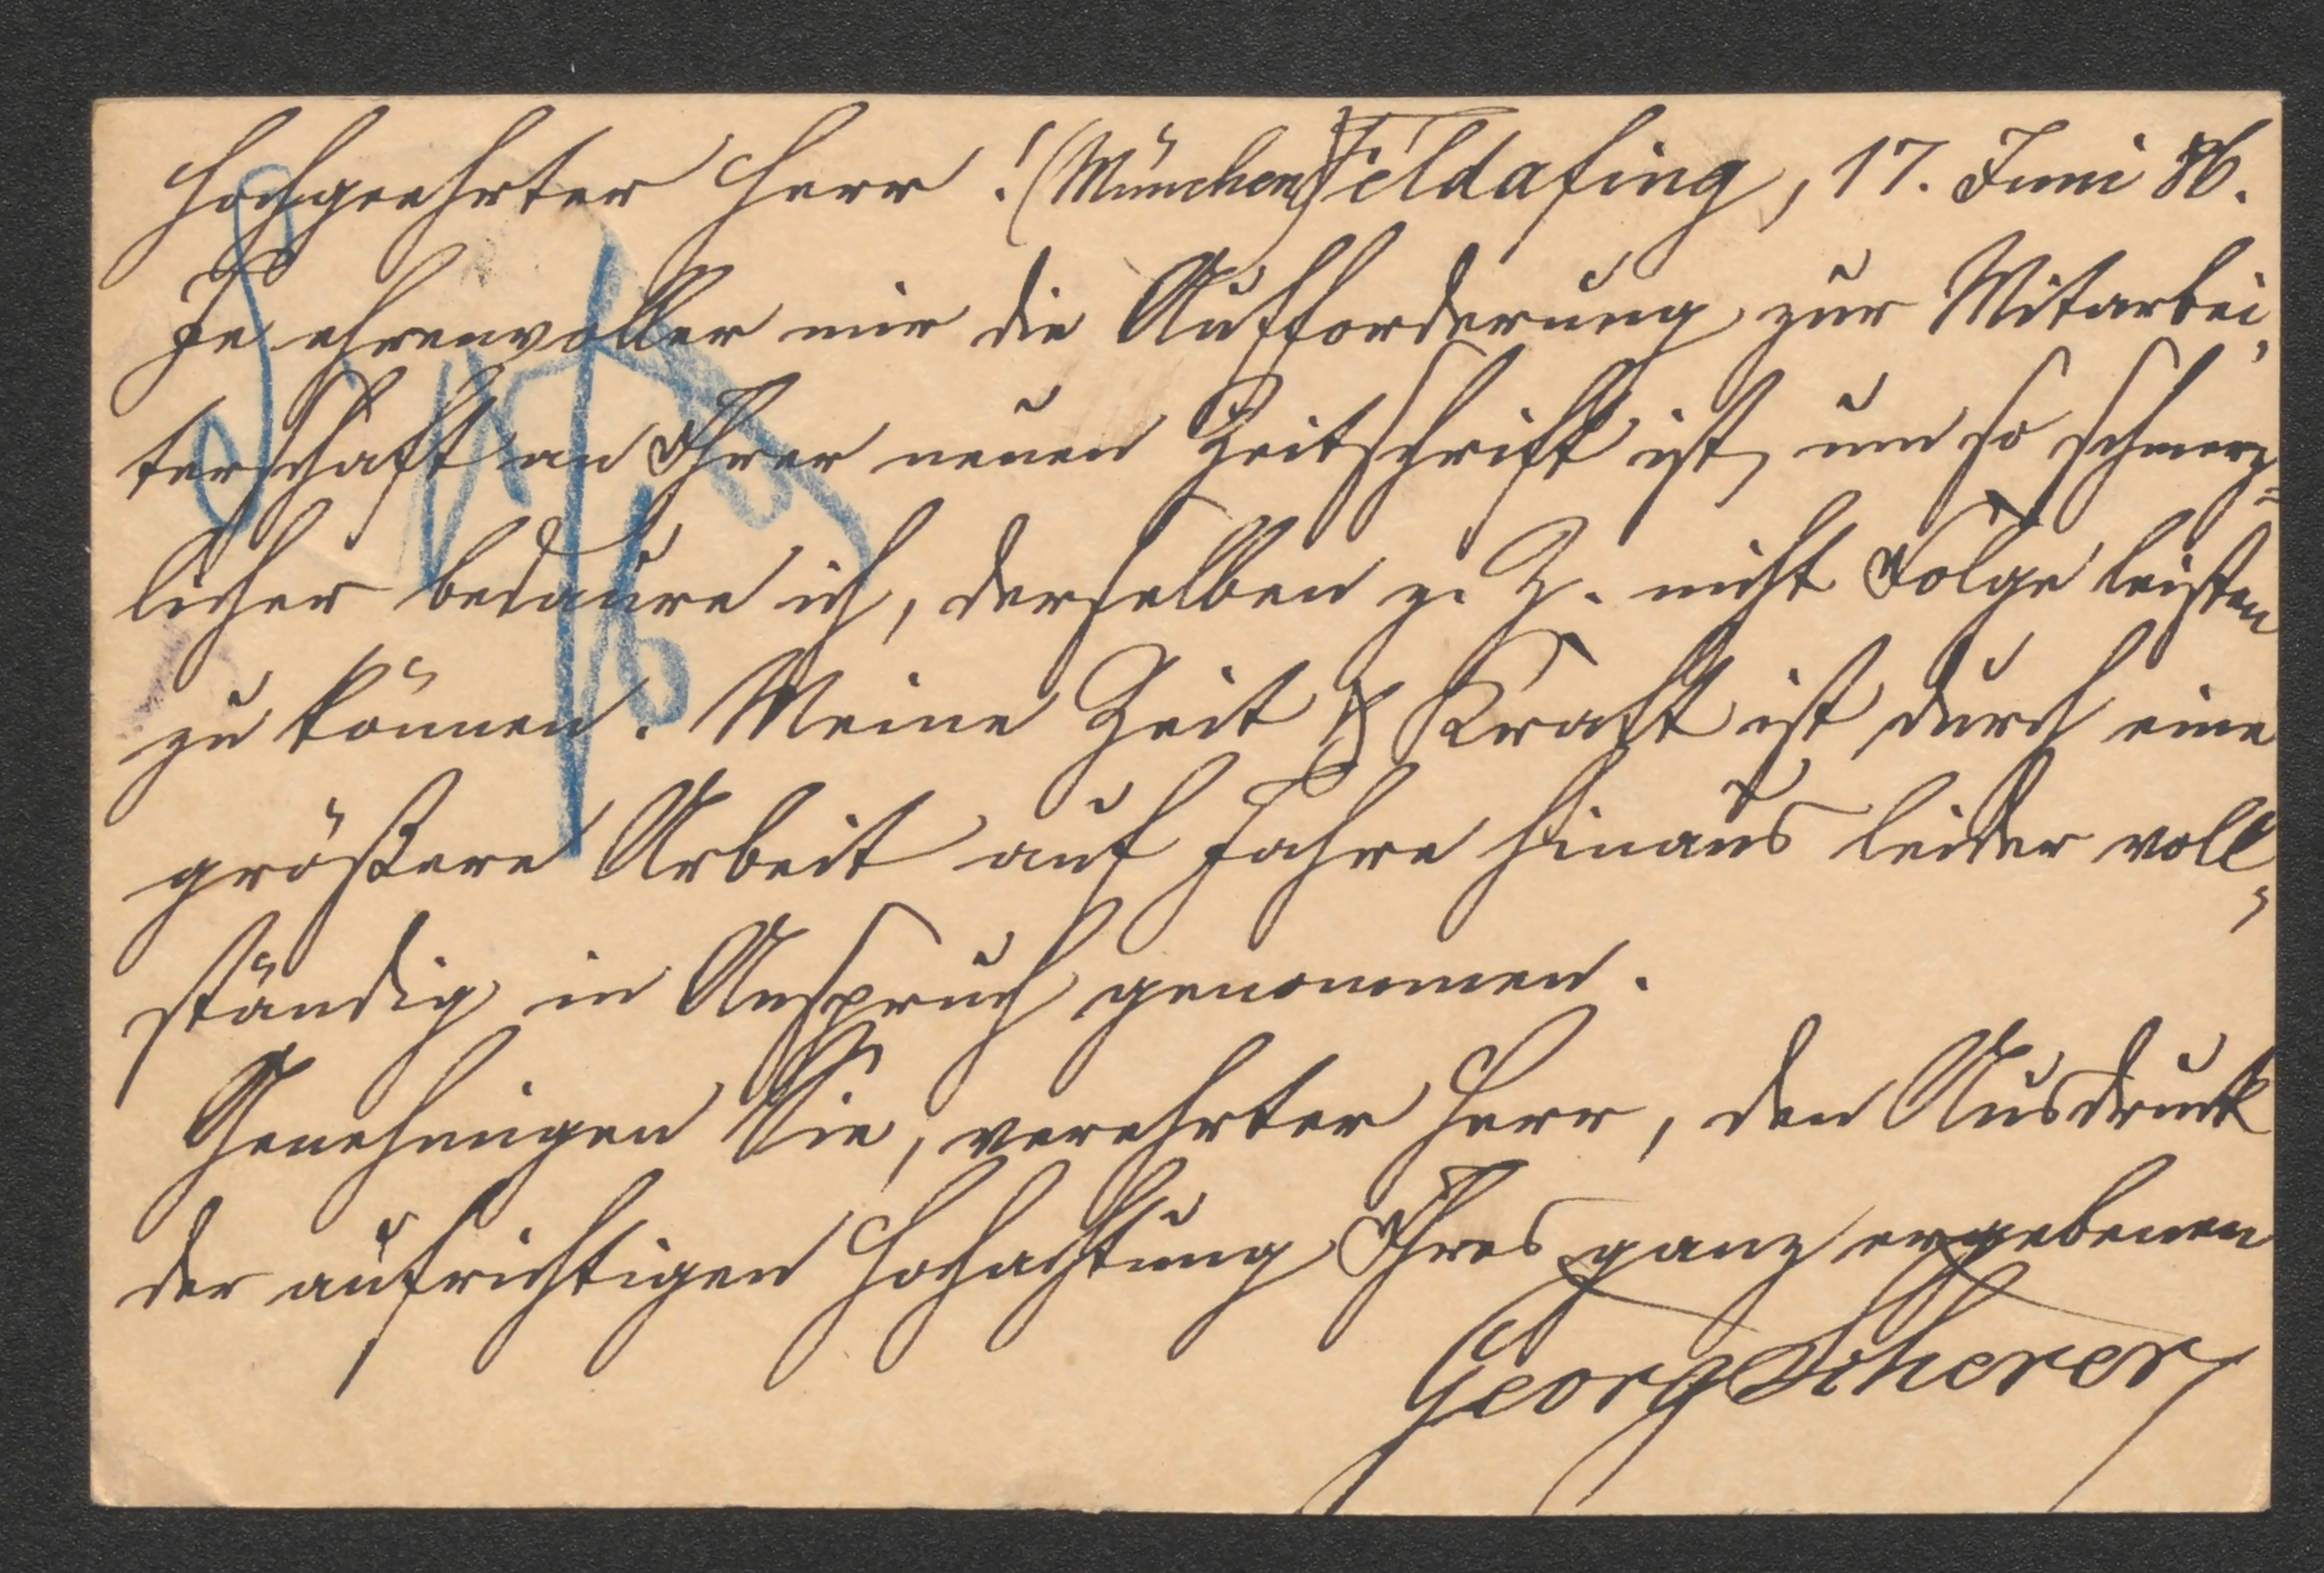 Hochgeehrter Herr! (München) Feldafing, 17. Juni 86.
Je ehrenvoller mir die Aufforderung zur Mitarbei-
terschaft an Ihrer neuen Zeitschrift ist, um so schmerz-
licher bedaure ich, derselben z. Z. nicht Folge leisten
zu können. Meine Zeit & Kraft ist durch eine
größere Arbeit auf Jahre hinaus leider voll-
ständig in Anspruch genommen.
Genehmigen Sie, verehrter Herr, den Ausdruck
der aufrichtigen Hochachtung Ihres ganz ergebenen
Georg Scherer